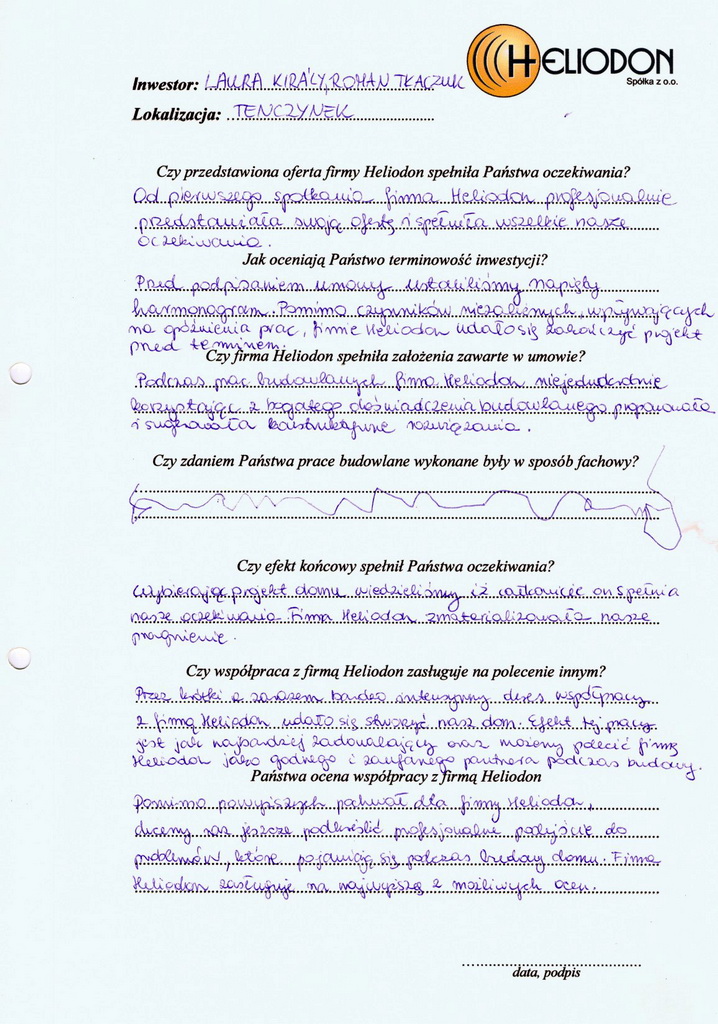 HELIODON
Spółka z o.o.
Inwestor: LAURA KIRÁLY, ROMAN TKACZUK
Lokalizacja: TENCZYNEK
Czy przedstawiona oferta firmy Heliodon spełniła Państwa oczekiwania?
Od pierwszego spotkania firma Heliodon profesjonalnie
przedstawiała swoją ofertę i spełniła wszelkie nasze
oczekiwania.
Jak oceniają Państwo terminowość inwestycji?
Przed podpisaniem umowy ustaliliśmy napięty
harmonogram. Pomimo czynników niezależnych, wpływających
na opóźnienia prac, firmie Heliodon udało się zakończyć projekt
przed terminem.
Czy firma Heliodon spełniła założenia zawarte w umowie?
Podczas prac budowlanych firma Heliodon niejednokrotnie
korzystając z bogatego doświadczenia budowlanego proponowała
i sugerowała konstruktywne rozwiązania.
Czy zdaniem Państwa prace budowlane wykonane były w sposób fachowy?
Czy efekt końcowy spełnił Państwa oczekiwania?
Wybierając projekt domu wiedzieliśmy iż całkowicie on spełnia
nasze oczekiwania. Firma Heliodon zmaterializowała nasze
pragnienie.
Czy współpraca z firmą Heliodon zasługuje na polecenie innym?
Przez krótki a zarazem bardzo intensywny okres współpracy
z firmą Heliodon udało się stworzyć nasz dom. Efekt tej pracy
jest jak najbardziej zadowalający oraz możemy polecić firmę
Heliodon jako godnego i zaufanego partnera podczas budowy.
Państwa ocena współpracy z firmą Heliodon
Pomimo powyższych pochwał dla firmy Heliodon,
chcemy raz jeszcze podkreślić profesjonalne podejście do
problemów, które pojawiają się podczas budowy domu. Firma
Heliodon zasługuje na najwyższą z możliwych ocen.
data, podpis